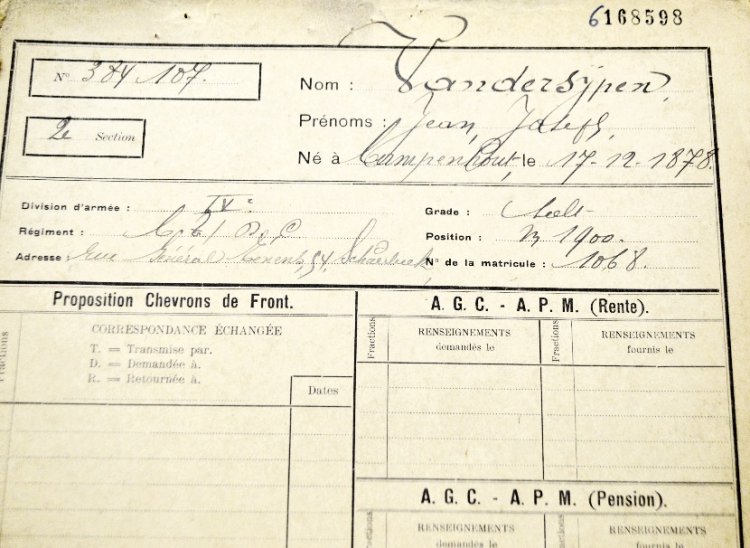 6168598
N° 384 107.
2e Section
Nom : Vandersypen,
Prénoms : Jean, Joseph,
Né à Campenhout, le 17-12-1878.
Division d'armée : IVe
Régiment :
Adresse : rue Général 54, Schaerbeek,
Grade : Sold-
Position : m 1900.
N° de la matricule : 1068.
Proposition Chevrons de Front.
Fractions
CORRESPONDANCE ÉCHANGÉE
T. = Transmise par.
D. = Demandée à.
R. = Retournée à.
Dates
A. G. C. - A. P. M. (Rente).
Fractions
RENSEIGNEMENTS
demandés le
Fractions
RENSEIGNEMENTS
fournis le
A. G. C. - A. P. M. (Pension).
Fractions
RENSEIGNEMENTS
demandés le
Fractions
RENSEIGNEMENTS
fournis le